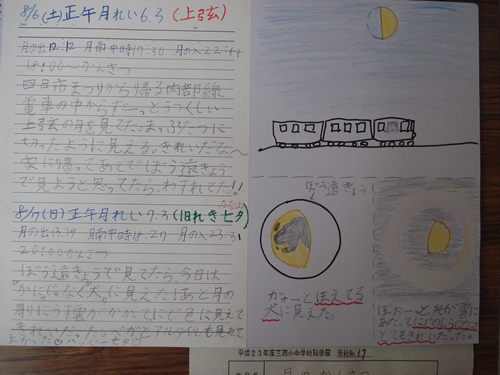 8/6(土)正午月れい6.3(上弦)
月の出12:12 月南中時17:30 月の入22:44
18:00〜かんさつ
四日市まつりから帰る内部線
電車の中からずーっとうつくしい
上弦の月を見てた。まっぷたつに
切ったように見える。きれいだな〜
家に帰ってあとでぼう遠きょう
で見ようと思ってたら、わすれてた!!
8/7(日)正午月れい7.3(旧れき七夕)
たなばた
20:00かんさつ
ぼう遠きょうで見てたら、今日は
"かに"じゃなく"犬"に見えた!あと月の
周りにうす雲がかかってにじ色に見えて
きれいだった。ベガとアルタイルも見えて
ぼう遠きょう
ガォーとほえてる
犬に見えた。
ぼおーっと光が雲に
とてもきれいだった。
平成23年度三泗小中学校科学展 学校No.17
月のかんさつ